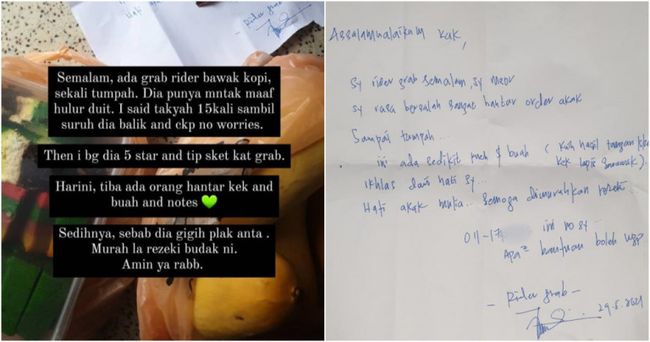 Semalam, ada grab rider bawak kopi,
sekali tumpah. Dia punya mntak maaf
hulur duit. I said takyah 15kali sambil
suruh dia balik and ckp no worries.
Then i bg dia 5 star and tip sket kat grab.
Harini, tiba ada orang hantar kek and
buah and notes 💚
Sedihnya, sebab dia gigih plak anta .
Murah la rezeki budak ni.
Amin ya rabb.
Assalamualaikum kak,
Sy rider grab semalam, sy
sy rasa bersalah sangat hantar order akak
Sampai tumpah...
ini ada sedikit & buah ( hasil tangan
kek lapis Sarawak).
Ikhlas dari hati sy..
Hati akak Semoga dimurahkan rezeki
011-17 ini no sy
Apa² bantuan boleh wsp
- Rider grab -
29.5.2021